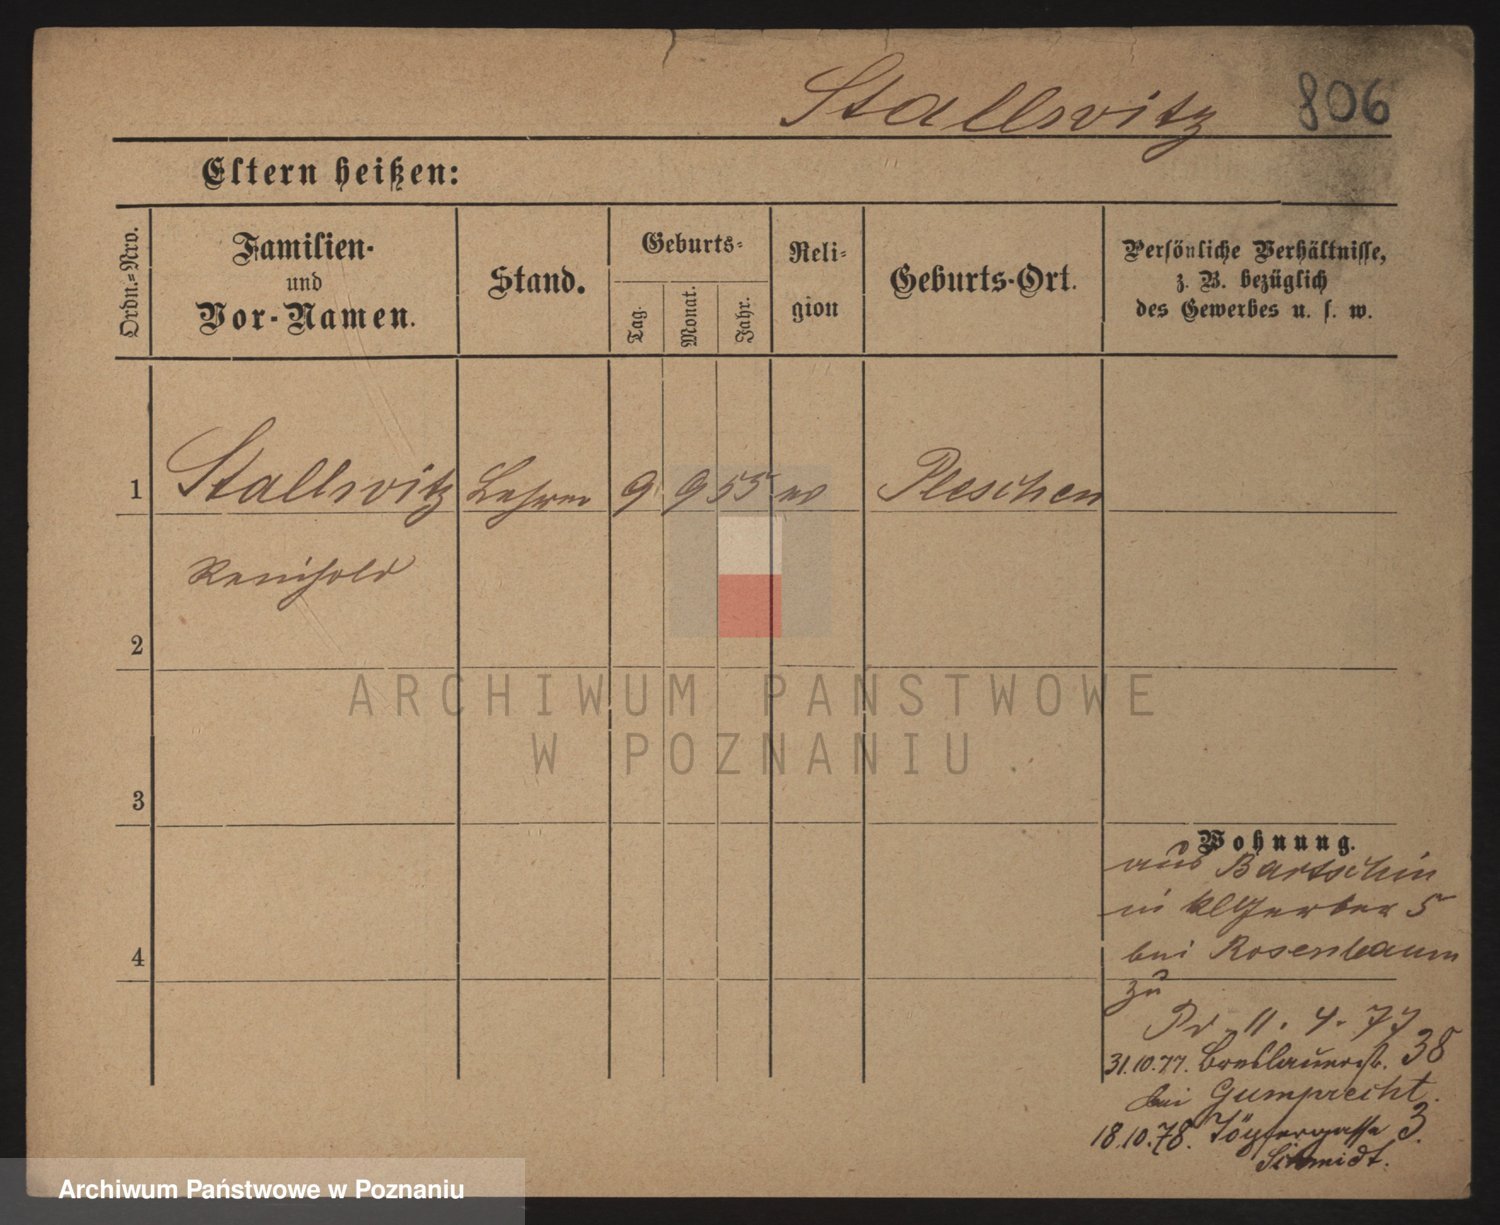 Stallwitz 806
Eltern heißen:
Ordn.-Nro.
Familien-
und
Vor-Namen.
Stand.
Geburts-
Tag.
Monat.
Jahr.
Reli-
gion
Geburts-Ort.
Persönliche Verhältnisse,
z. B. bezüglich
des Gewerbes u. s. w.
1 Stallwitz Lehrer 9 9 55 ev Pleschen
Reinhold
2
ARCHIWUM PAŃSTWOWE
W POZNANIU.
3
Wohnung.
aus Bartschin
in kl Gerber 5
bei Rosenbaum
4
zu
Pd 11. 4. 77
31.10.77. Breslauerstr. 38
bei Gumprecht.
18.10.78. Töpfergasse 3.
Schmidt.
Archiwum Państwowe w Poznaniu